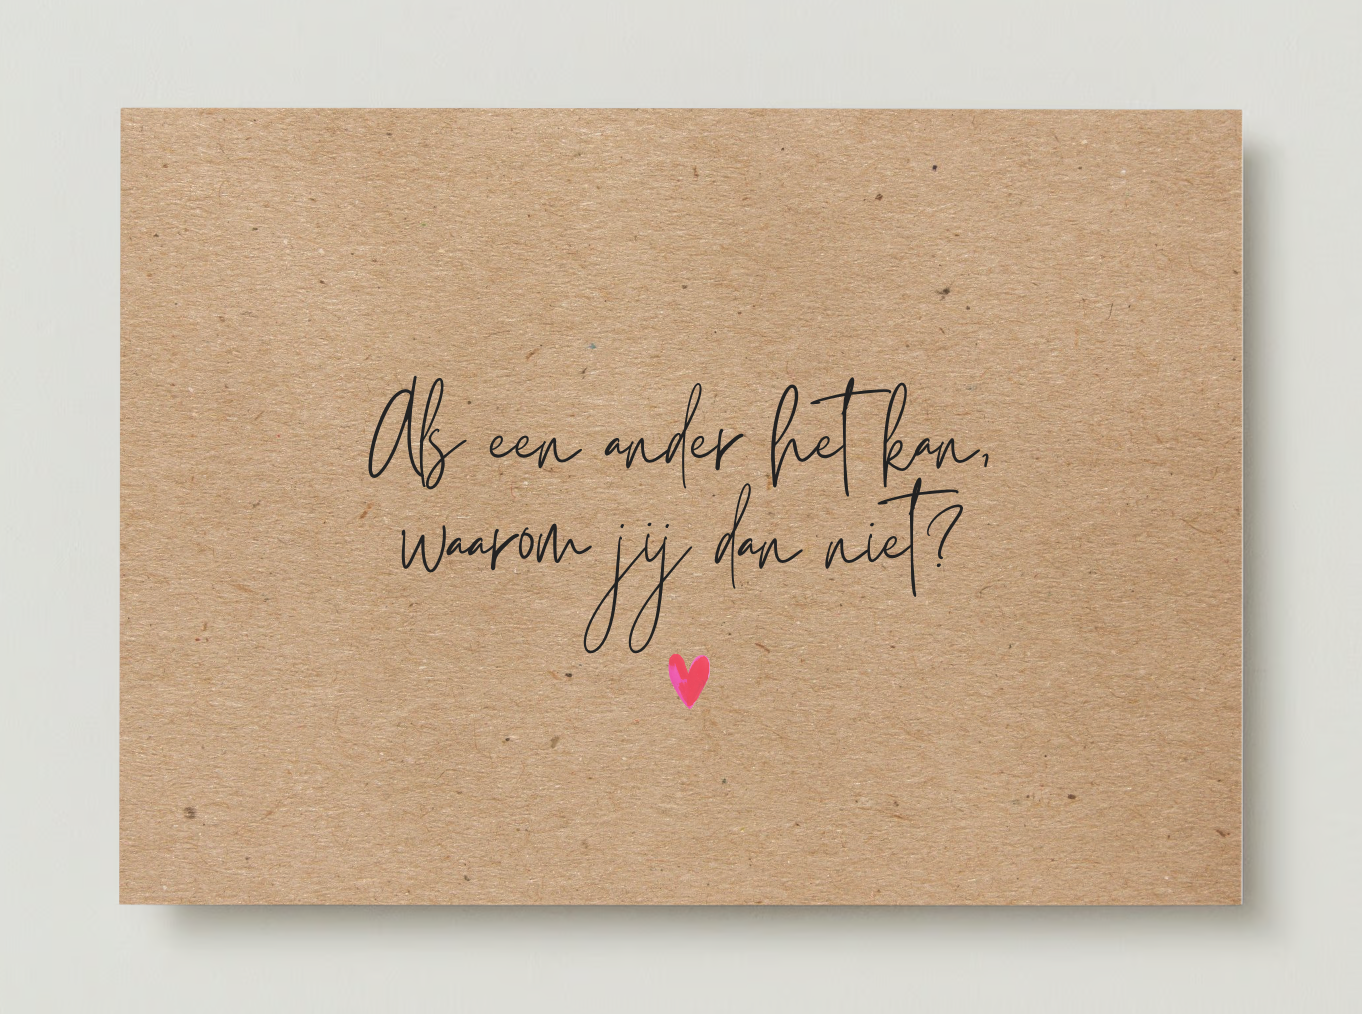 Als een ander het kan,
waarom jij dan niet?